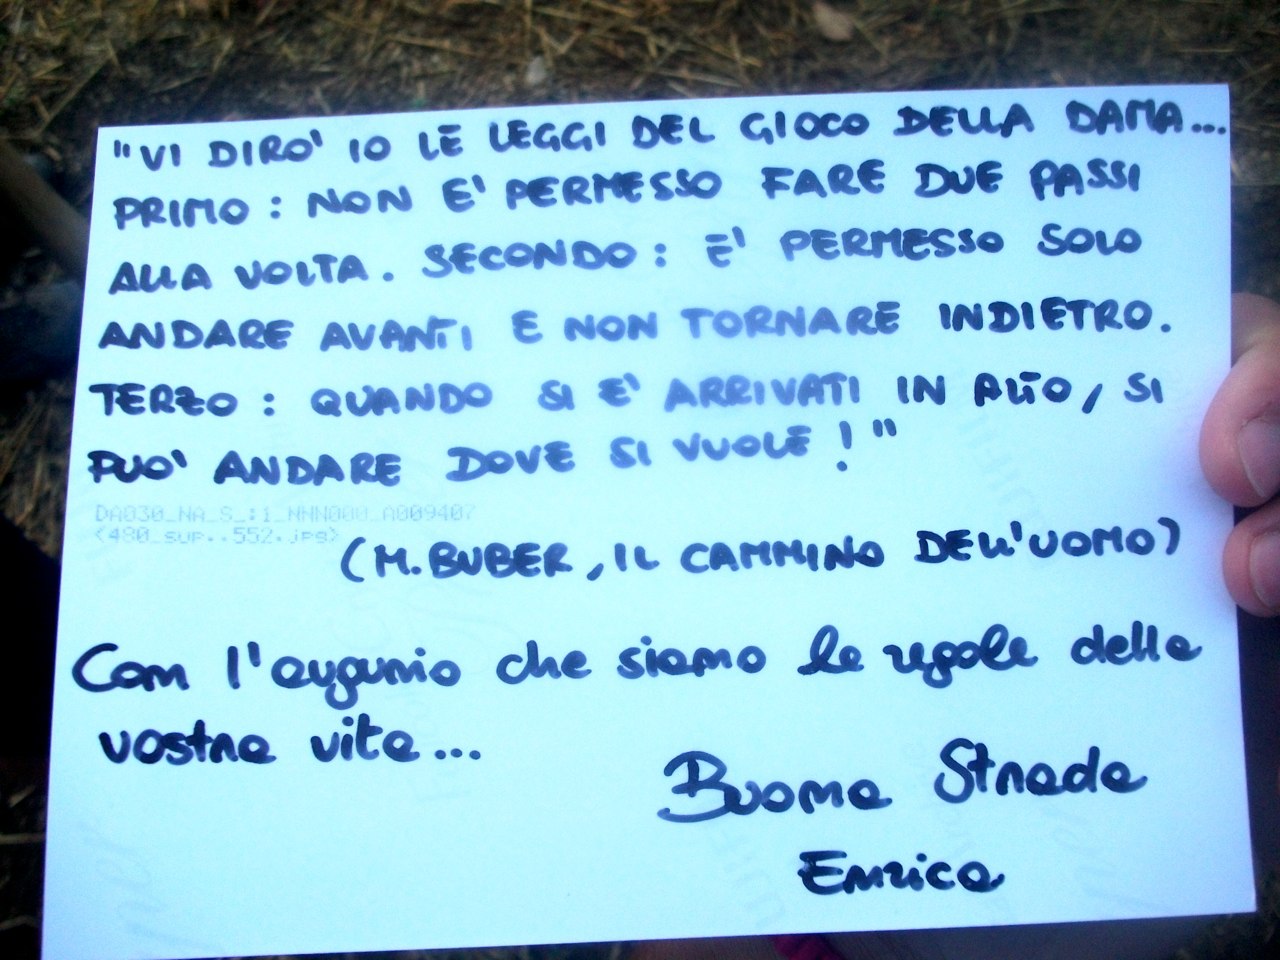 "VI DIRO' IO LE LEGGI DEL GIOCO DELLA DAMA...
PRIMO: NON E' PERMESSO FARE DUE PASSI
ALLA VOLTA. SECONDO: E' PERMESSO SOLO
ANDARE AVANTI E NON TORNARE INDIETRO.
TERZO: QUANDO SI E' ARRIVATI IN ALTO, SI
PUO' ANDARE DOVE SI VUOLE!"
DA030_NA_S_:1_NNN000_A009407
<480_sup..552.jpg>
(M. BUBER, IL CAMMINO DELL'UOMO)
Con l'augurio che siano le regole della
vostra vita...
Buona Strada
Enrica